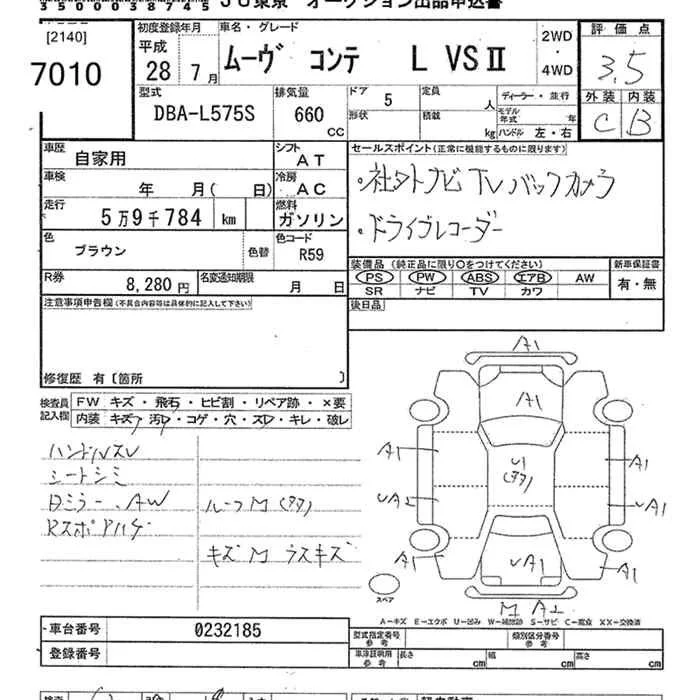 350003874
JU東京 オークション出品申込書
[2140]
7010
初度登録年月
平成
28 7月
車名・グレード
ムーヴ コンテ L VSⅡ
2WD
・
4WD
評価点
3.5
外装 内装
C B
型式
DBA-L575S
排気量
660
CC
ドア 5
形状
定員 人
積載 kg
ディーラー・並行
モデル年式 年
ハンドル 左・右
車歴
自家用
シフト
AT
車検
年 月( 日)
冷房
AC
走行
5万9千784 km
燃料
ガソリン
色
ブラウン
色替
色コード
R59
R券
8,280円
名変通知期限
月 日
セールスポイント(正常に機能するものに限ります)
・社外ナビ TV バックカメラ
・ドライブレコーダー
装備品 (純正品に限り〇をつけてください)
PS PW ABS エアB AW
SR ナビ TV カワ
新車保証書
有・無
後日品
注意事項申告欄(不具合内容等は具体的に記入して下さい)
修復歴 有〔箇所 〕
検査員記入欄
FW キズ・飛石・ヒビ割・リペア跡・×要
内装 キズ・汚・コゲ・穴・スレ・キレ・破レ
ハンドルスレ
シートシミ
ミラー、AW
ルーフM
キズ M ラスキズ
A1
A1
A1
A1
A1
UA2
UA1
A1
UA1
A1
M A2
スペア
A-キズ E-エクボ U-凹み W-補修跡 S-サビ C-腐食 XX-交換済
車台番号 0232185
登録番号
型式指定番号
参考
類別区分番号
参考
車庫証明用
参考
長さ cm 幅 cm 高さ cm